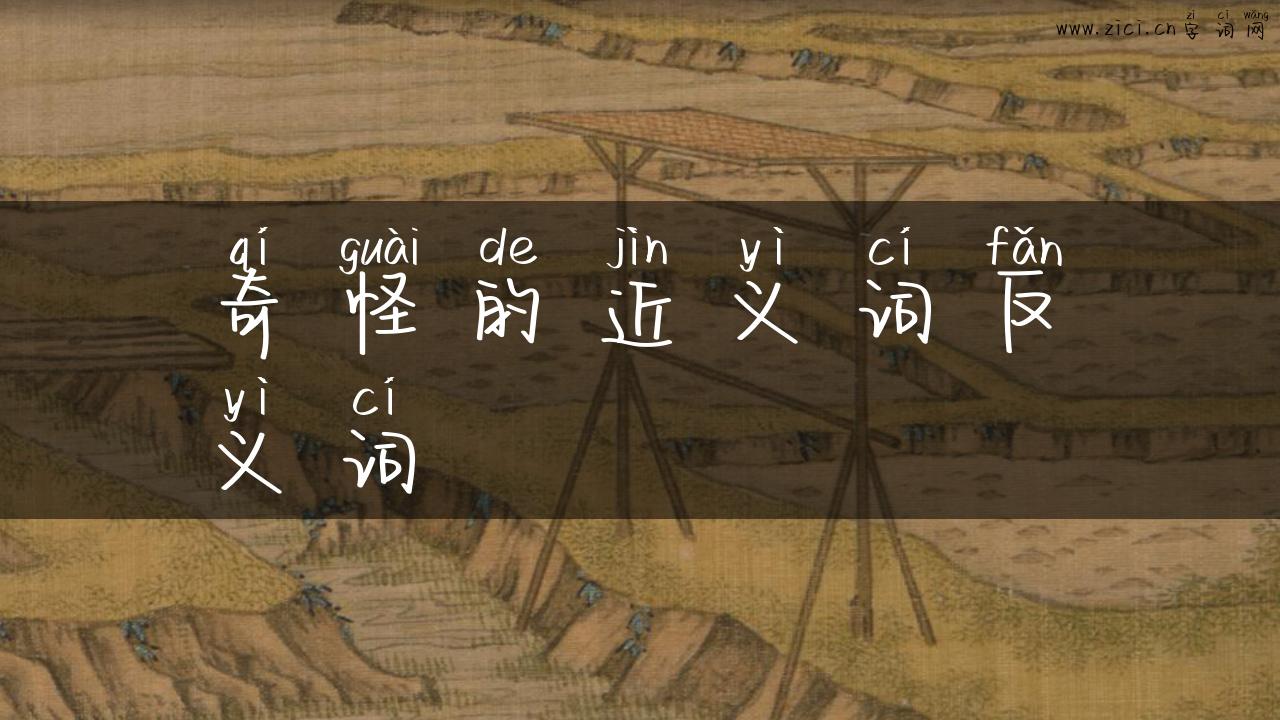 zì cí wǎng
www.zici.cn 字词网
qí guài de jìn yì cí fǎn
奇怪的近义词反
yì cí
义词